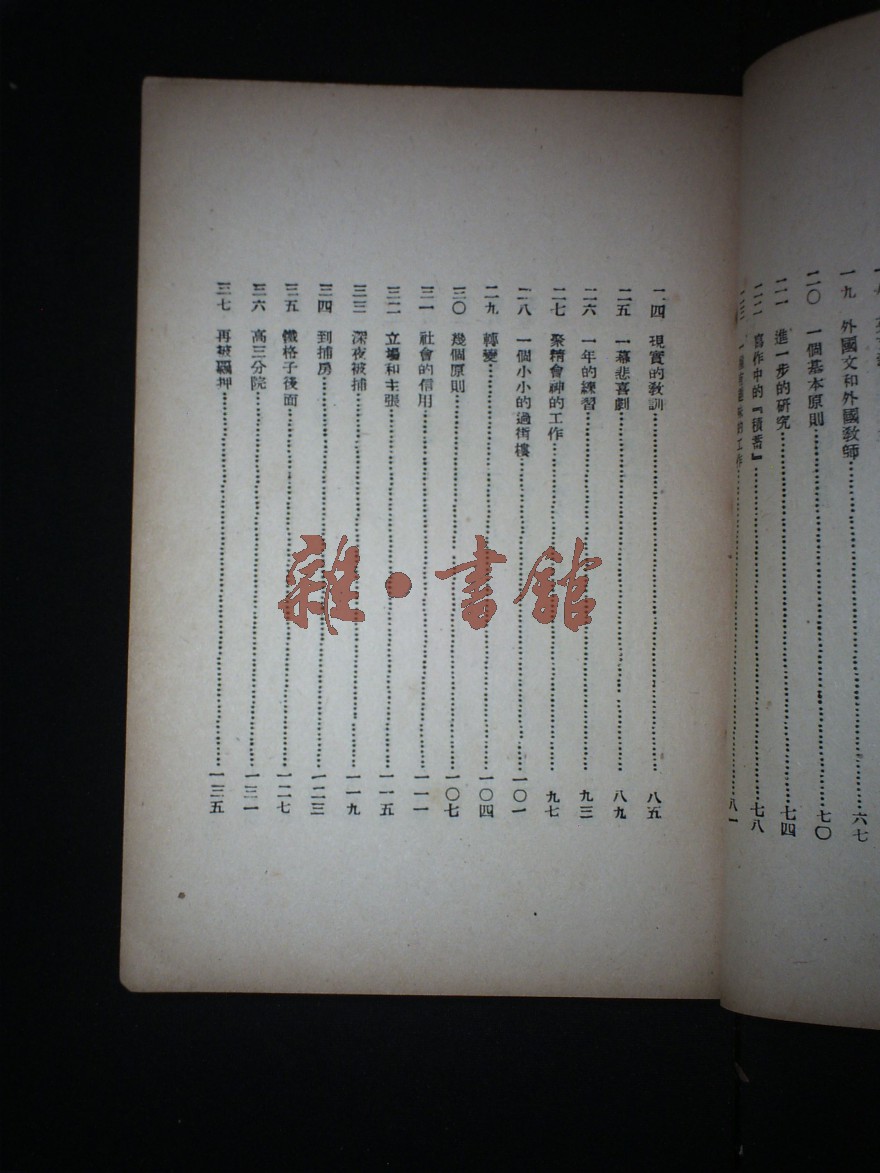 一九 外國文和外國教師 六七
二〇 一個基本原則 七〇
二一 進一步的研究 七四
二二 寫作中的『積蓄』 七八
的工作 八一
二四 現實的教訓 八五
二五 一幕悲喜劇 八九
二六 一年的練習 九三
二七 聚精會神的工作 九七
二八 一個小小的過街樓 一〇一
二九 轉變 一〇四
三〇 幾個原則 一〇七
三一 社會的信用 一一一
三二 立場和主張 一一五
三三 深夜被捕 一一九
三四 到捕房 一二三
三五 鐵格子後面 一二七
三六 高三分院 一三一
三七 再被羈押 一三五
雜·書館